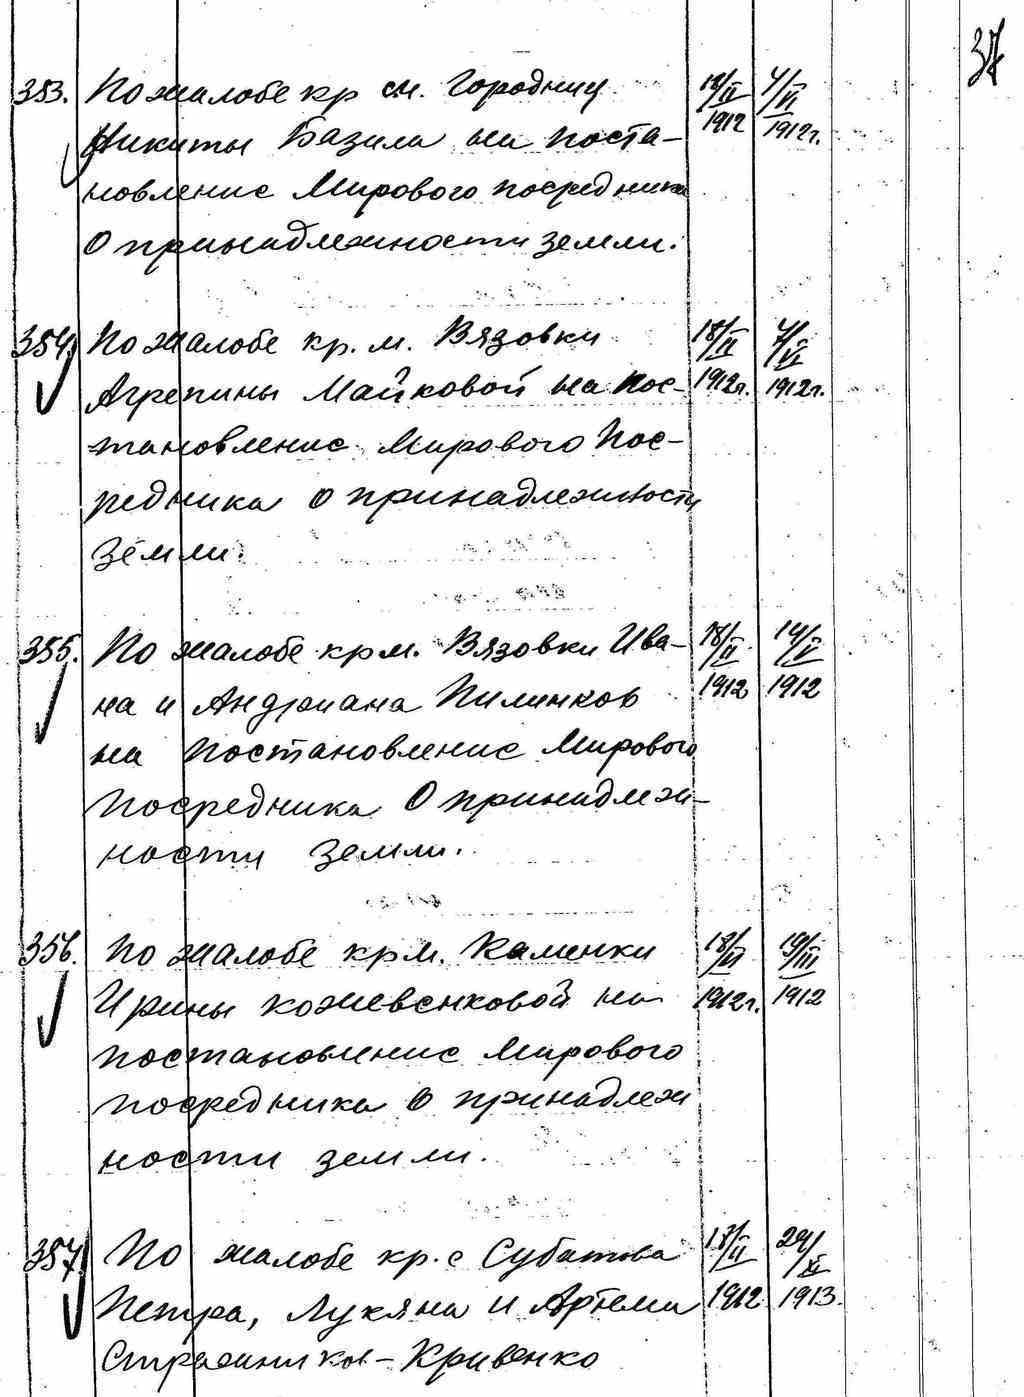 37
353. По жалобе кр см. Городищ 18/II 4/VI
Никиты Базила на поста- 1912 1912г.
новление Мирового посредника
о принадлежности земли.
354. По жалобе кр. м. Вязовки 18/II 4/VI
Агрепины Майковой на пос- 1912г. 1912г.
тановление Мирового Пос-
редника о принадлежности
земли.
355. По жалобе кр м. Вязовки Ива- 18/II 14/V
на и Андриана Пилипков 1912 1912
на постановление Мирового
Посредника о принадлеж-
ности земли.
356. По жалобе кр м. Каменки 18/II 19/III
Ирины Кожевенковой на 1912г. 1912
постановление Мирового
посредника о принадлеж
ности земли.
357. По жалобе кр. с Субатова 18/II
Петра, Лукяна и Артема 1912 1913.
Кривенко